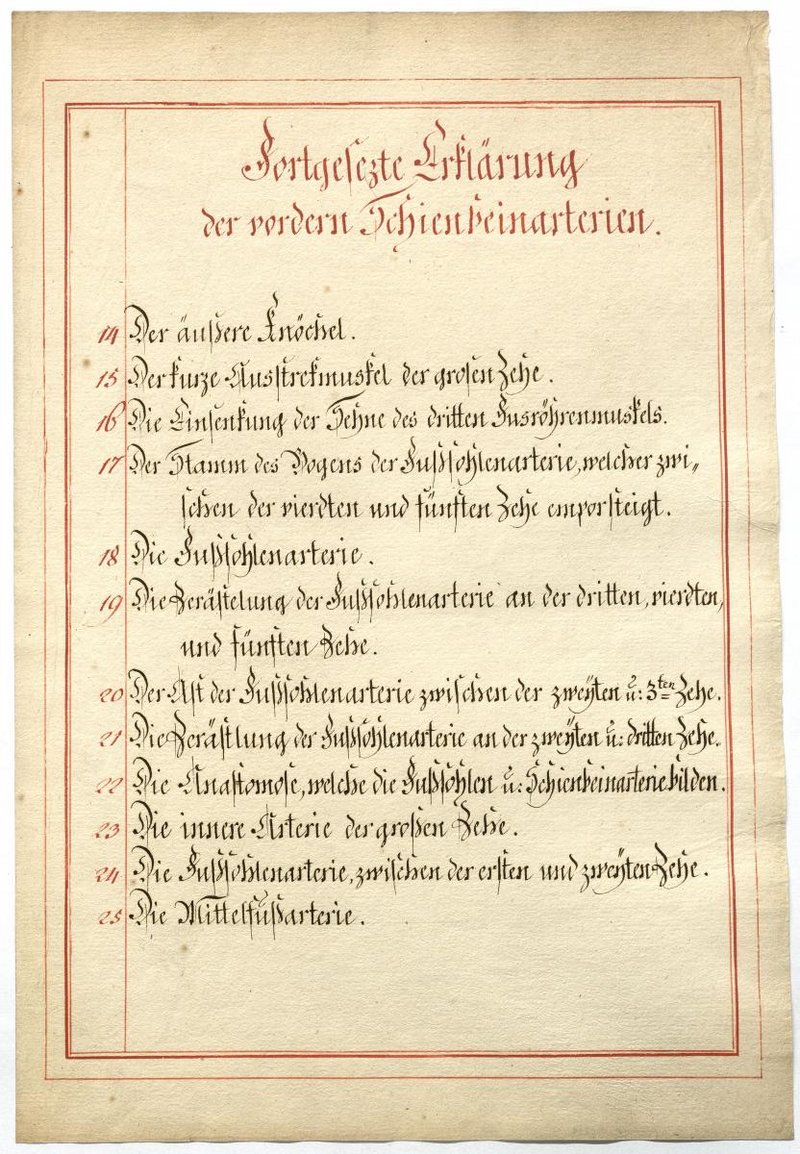 Fortgesezte Erklärung
der vordern Schienbeinarterien.
14 Der äußere Knöchel.
15 Der kurze Ausstrekmuskel der grosen Zehe.
16 Die Einsenkung der Sehne des dritten Fusröhrenmuskels.
17 Der Stamm des Bogens der Fußsohlenarterie, welcher zwi„
schen der vierdten und fünften Zehe emporsteigt.
18 Die Fußsohlenarterie.
19 Die Zerästelung der Fußsohlenarterie an der dritten, vierdten,
und fünften Zehe.
20 Der Ast der Fußsohlenarterie zwischen der zweÿten u: 3ten Zehe.
21 Die Zerästlung der Fußsohlenarterie an der zweÿten u: dritten Zehe.
22 Die Anastomose, welche die Fußsohlen u: Schienbeinarterie bilden.
23 Die innere Arterie der großen Zehe.
24 Die Fußsohlenarterie, zwischen der ersten und zweÿten Zehe.
25 Die Mittelfußarterie.